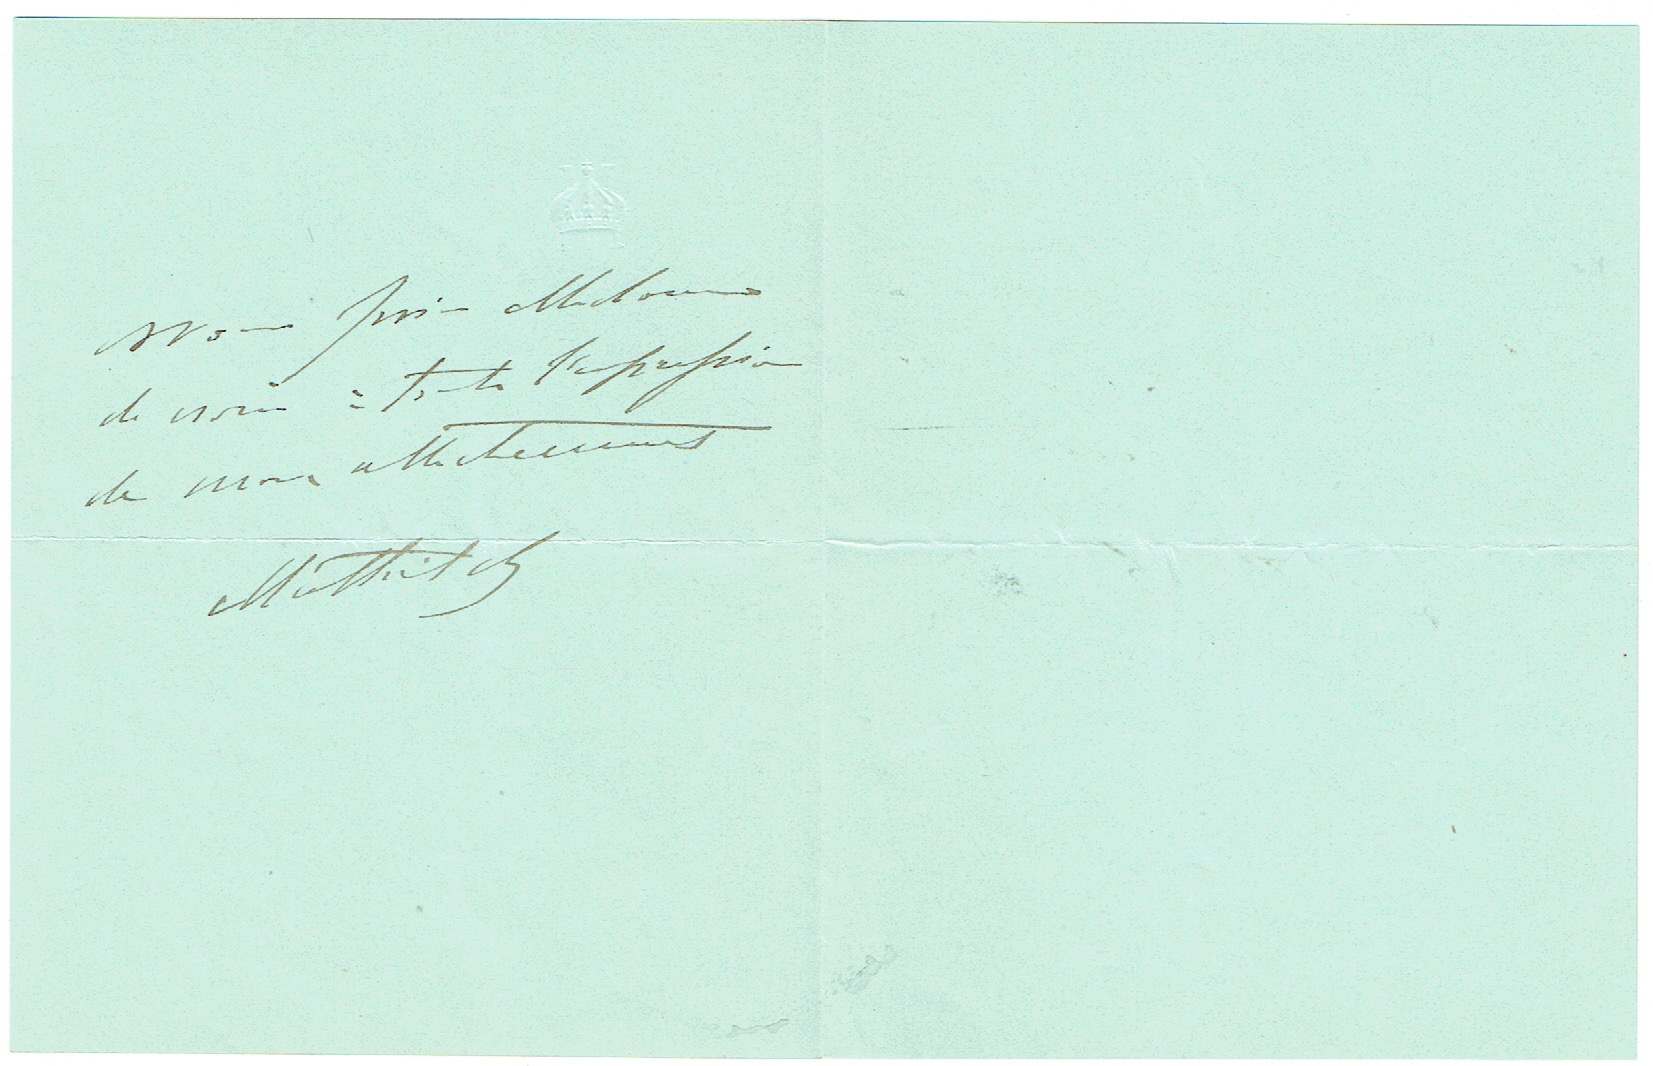 Vous prie Madame
de croire à toute l'expression
de mon attachement
Mathilde